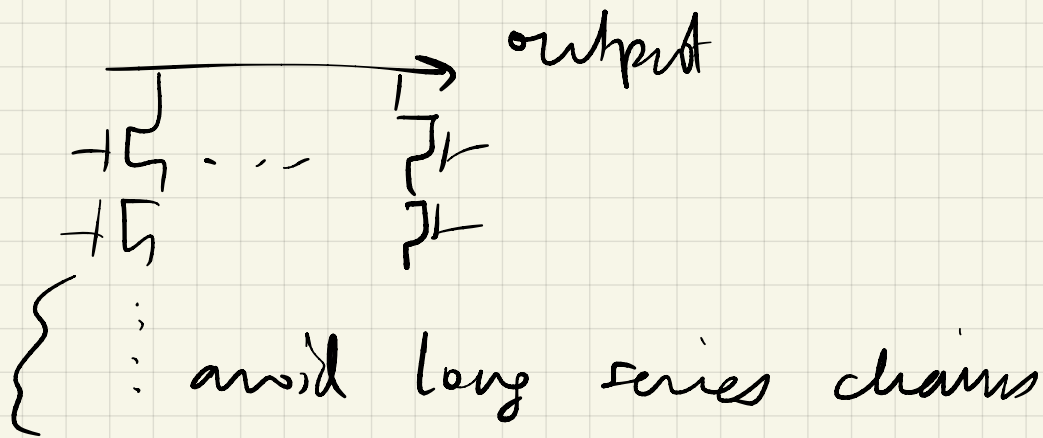 output
avoid long series chains